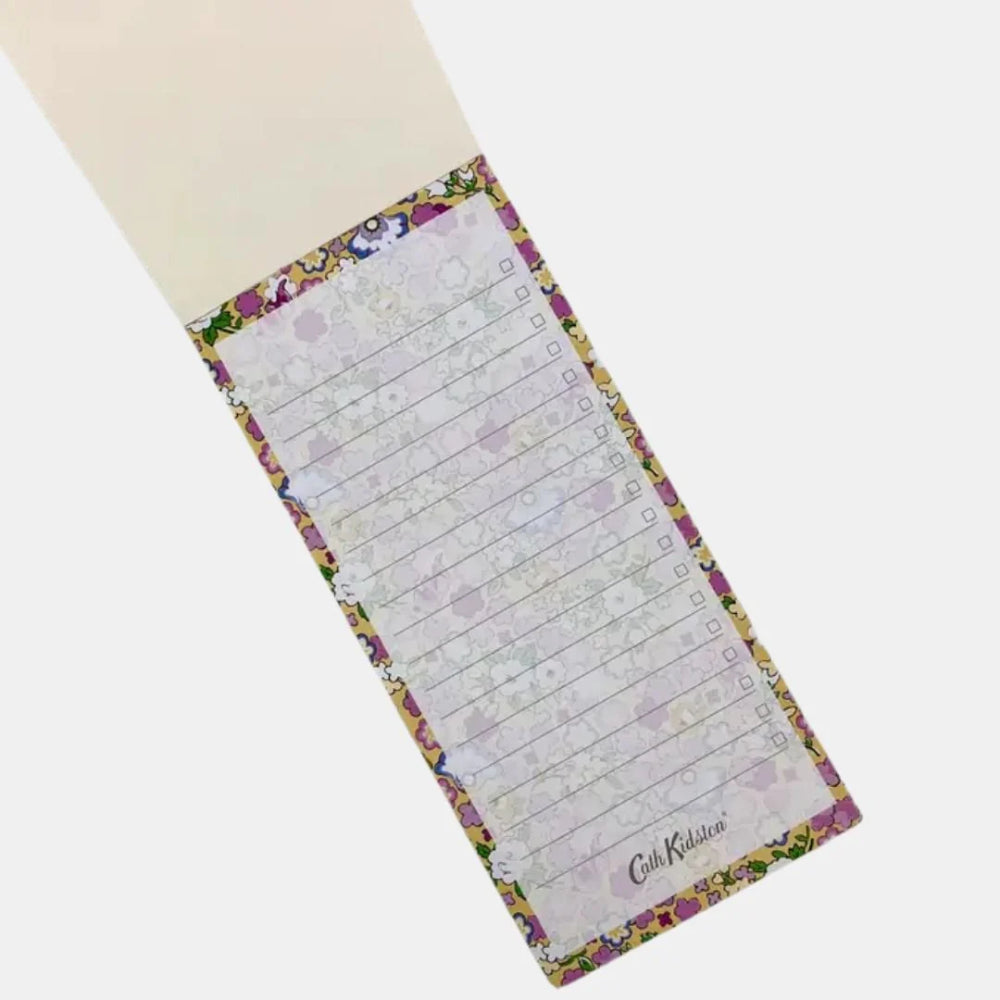 Cath Kidston®